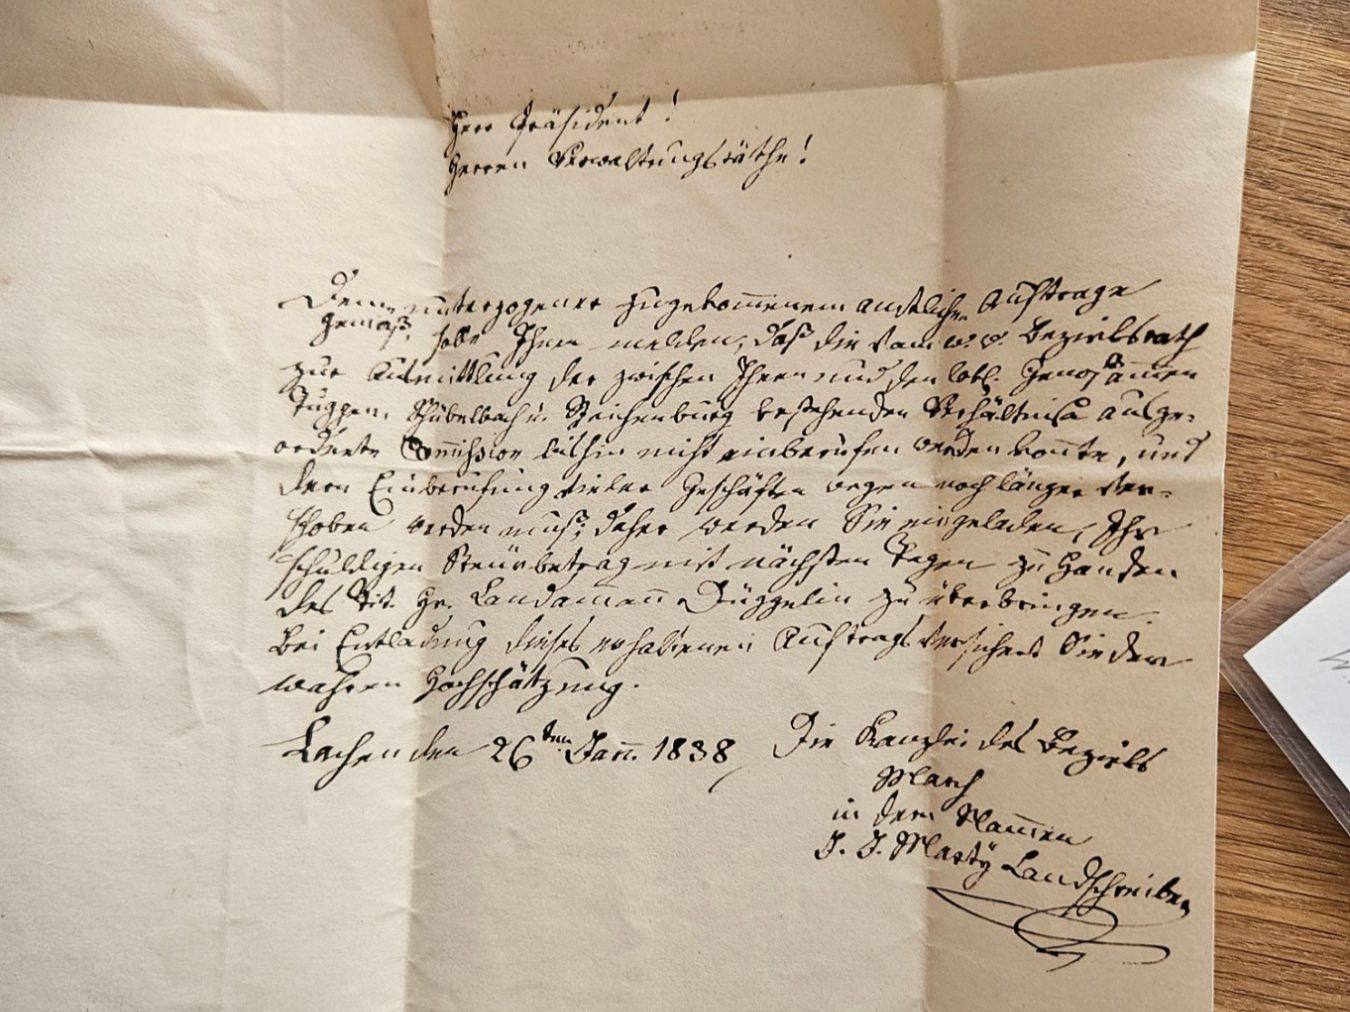 Herr Präsident!
Herren Verwaltungsräthe!
Dem unterzogener zugekommenem amtlichen Auftrage
gemäß, solle Ihnen melden, daß die vom w. w. Bezirksrath
zur Ausmittlung der zwischen Ihnen und den lobl. Genoßammen
Tuggen, Schübelbach u. Reichenburg bestehenden Verhältniße ausge-
ordnete Commission bishin nicht einberufen werden konnte, und
deren Einberufung vieler Geschäften wegen noch länger ver-
schoben werden muß; daher werden Sie eingeladen, Ihr
schuldigen Steürbetrag mit nächsten Tagen zu Handen
des Tit. Hr. Landammann Düggelin zu überbringen.
Bei Entladung dieses erhaltenen Auftrags versichert Sie der
wahren Hochschätzung.
Lachen den 26ten Jan. 1838
Die Kanzlei des Bezirks
March
in deren Nammen
J. J. Marty Landschreiber